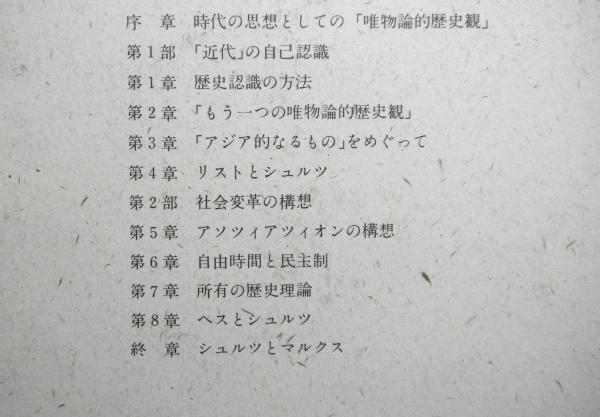 序　章　時代の思想としての「唯物論的歴史観」
第1部　「近代」の自己認識
第1章　歴史認識の方法
第2章　「もう一つの唯物論的歴史観」
第3章　「アジア的なるもの」をめぐって
第4章　リストとシュルツ
第2部　社会変革の構想
第5章　アソツィアツィオンの構想
第6章　自由時間と民主制
第7章　所有の歴史理論
第8章　ヘスとシュルツ
終　章　シュルツとマルクス